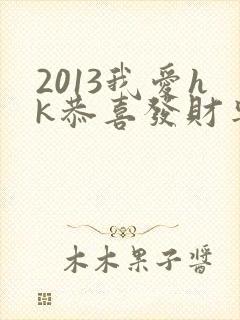 2013我愛h
k恭喜發財
木木果子醬